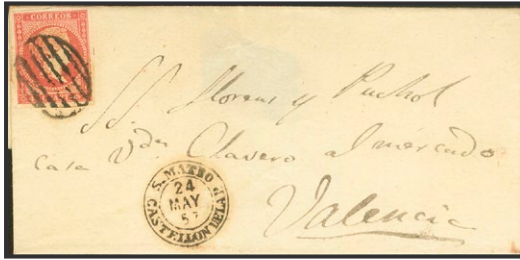 CORREOS
SS. Llorens y Puchol
Casa Vda. Clavero al mercado
Valencia
S. MATEO
24
MAY
57
CASTELLON DE LA P.